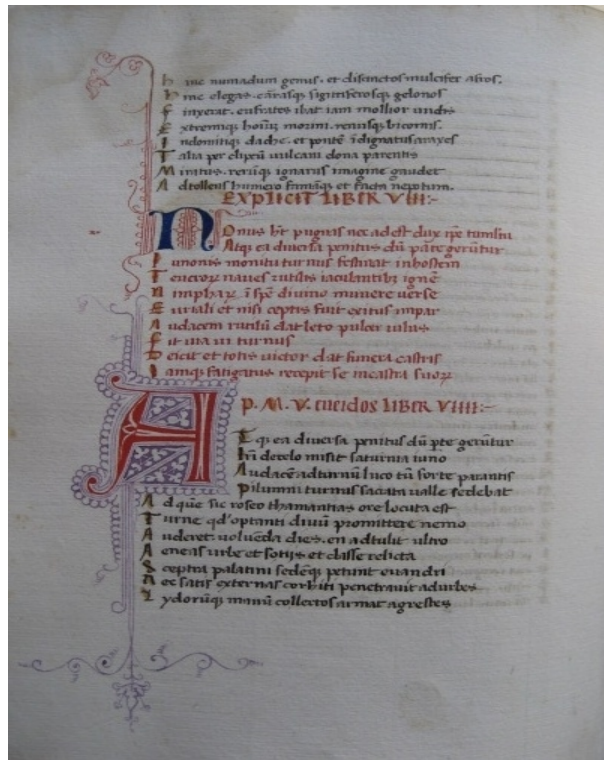 h inc numadum genus. et discinctos mulcifer afros.
h inc elegas. carasq; sigittiferosq; gelonos
f inxerat. eufrates ibat iam mollior undis
E xtremiq; hominum morini. renusq; bicornis.
I ndomitiq; dache. et ponte indignatus araxes
T alia per clipeum vulcani dona parentis
M iratur. rerumq; ignarus imagine gaudet
A dtollens humero famamq; et facta nepotum.
EXPLICIT LIBER VIII:-
N Onus ht pugnas nec adest dux ipe tumultu
Atqi ea diversa penitus du pare geruntur
I unonis monitu turnus festinat in hostem
T eucror naves rutulis iaculantibus igne
N impharum i spe divino munere verse
E uriali et nisi ceptis fuit exitus impar
A udacem rutilu dat leto pulcer iulus
F it via vi turnus
D eicit et totis victor dat funera castris
I amq; fatigatus recepit se in castra suor
P. M. V. eneidos LIBER VIIII:-
A Tq; ea diversa penitus du pte geruntur
Iri de celo misit saturnia iuno
Audace ad turnu luco tu forte parentis
Pilumni turnus sacrata valle sedebat
A d que sic roseo thamantias ore locuta est
T urne qd' optanti divu promittere nemo
A uderet volueda dies. en adtulit ultro
A eneas urbe et sotiis et classe relicta
S ceptra palatini sedeq; petunt evandri
N ec satis externas corbiti penetravit ad urbes
L ydorumq; manu collectos armat agrestes